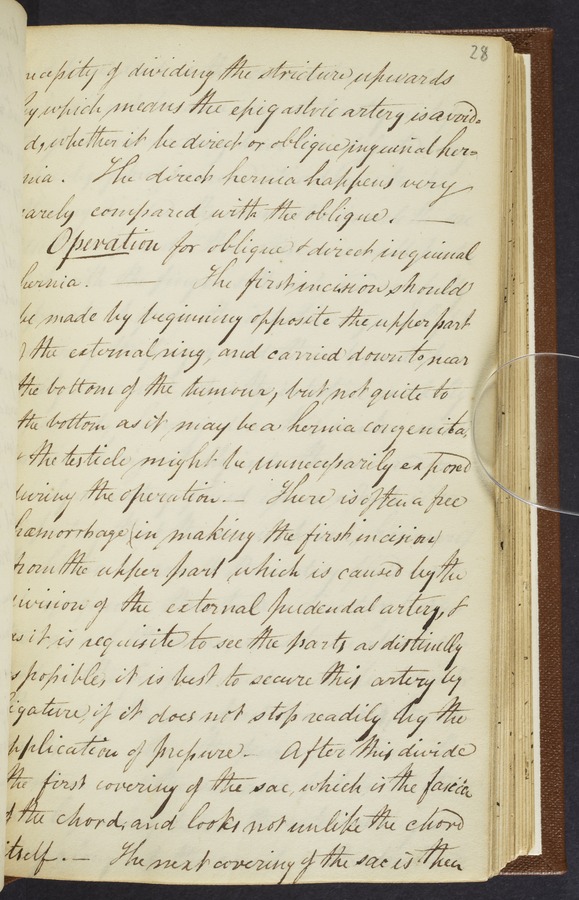 28
necessity of dividing the stricture upwards
by which means the epigastric artery is avoid=
d, whether it be direct or oblique inguinal her=
nia. The direct hernia happens very
rarely compared with the oblique. —
Operation for oblique & direct inguinal
hernia. — The first incision should
be made by beginning opposite the upper part
of the external ring, and carried down to near
the bottom of the tumour, but not quite to
the bottom as it may be a hernia congenita,
& the testicle might be unnecessarily exposed
during the operation. — There is often a free
hæmorrhage (in making the first incision)
from the upper part which is caused by the
division of the external pudendal artery, &
as it is requisite to see the parts as distinctly
as possible, it is best to secure this artery by
ligature, if it does not stop readily by the
application of pressure — After this divide
the first covering of the sac, which is the fascia
of the chord, and looks not unlike the chord
itself. — The next covering of the sac is then